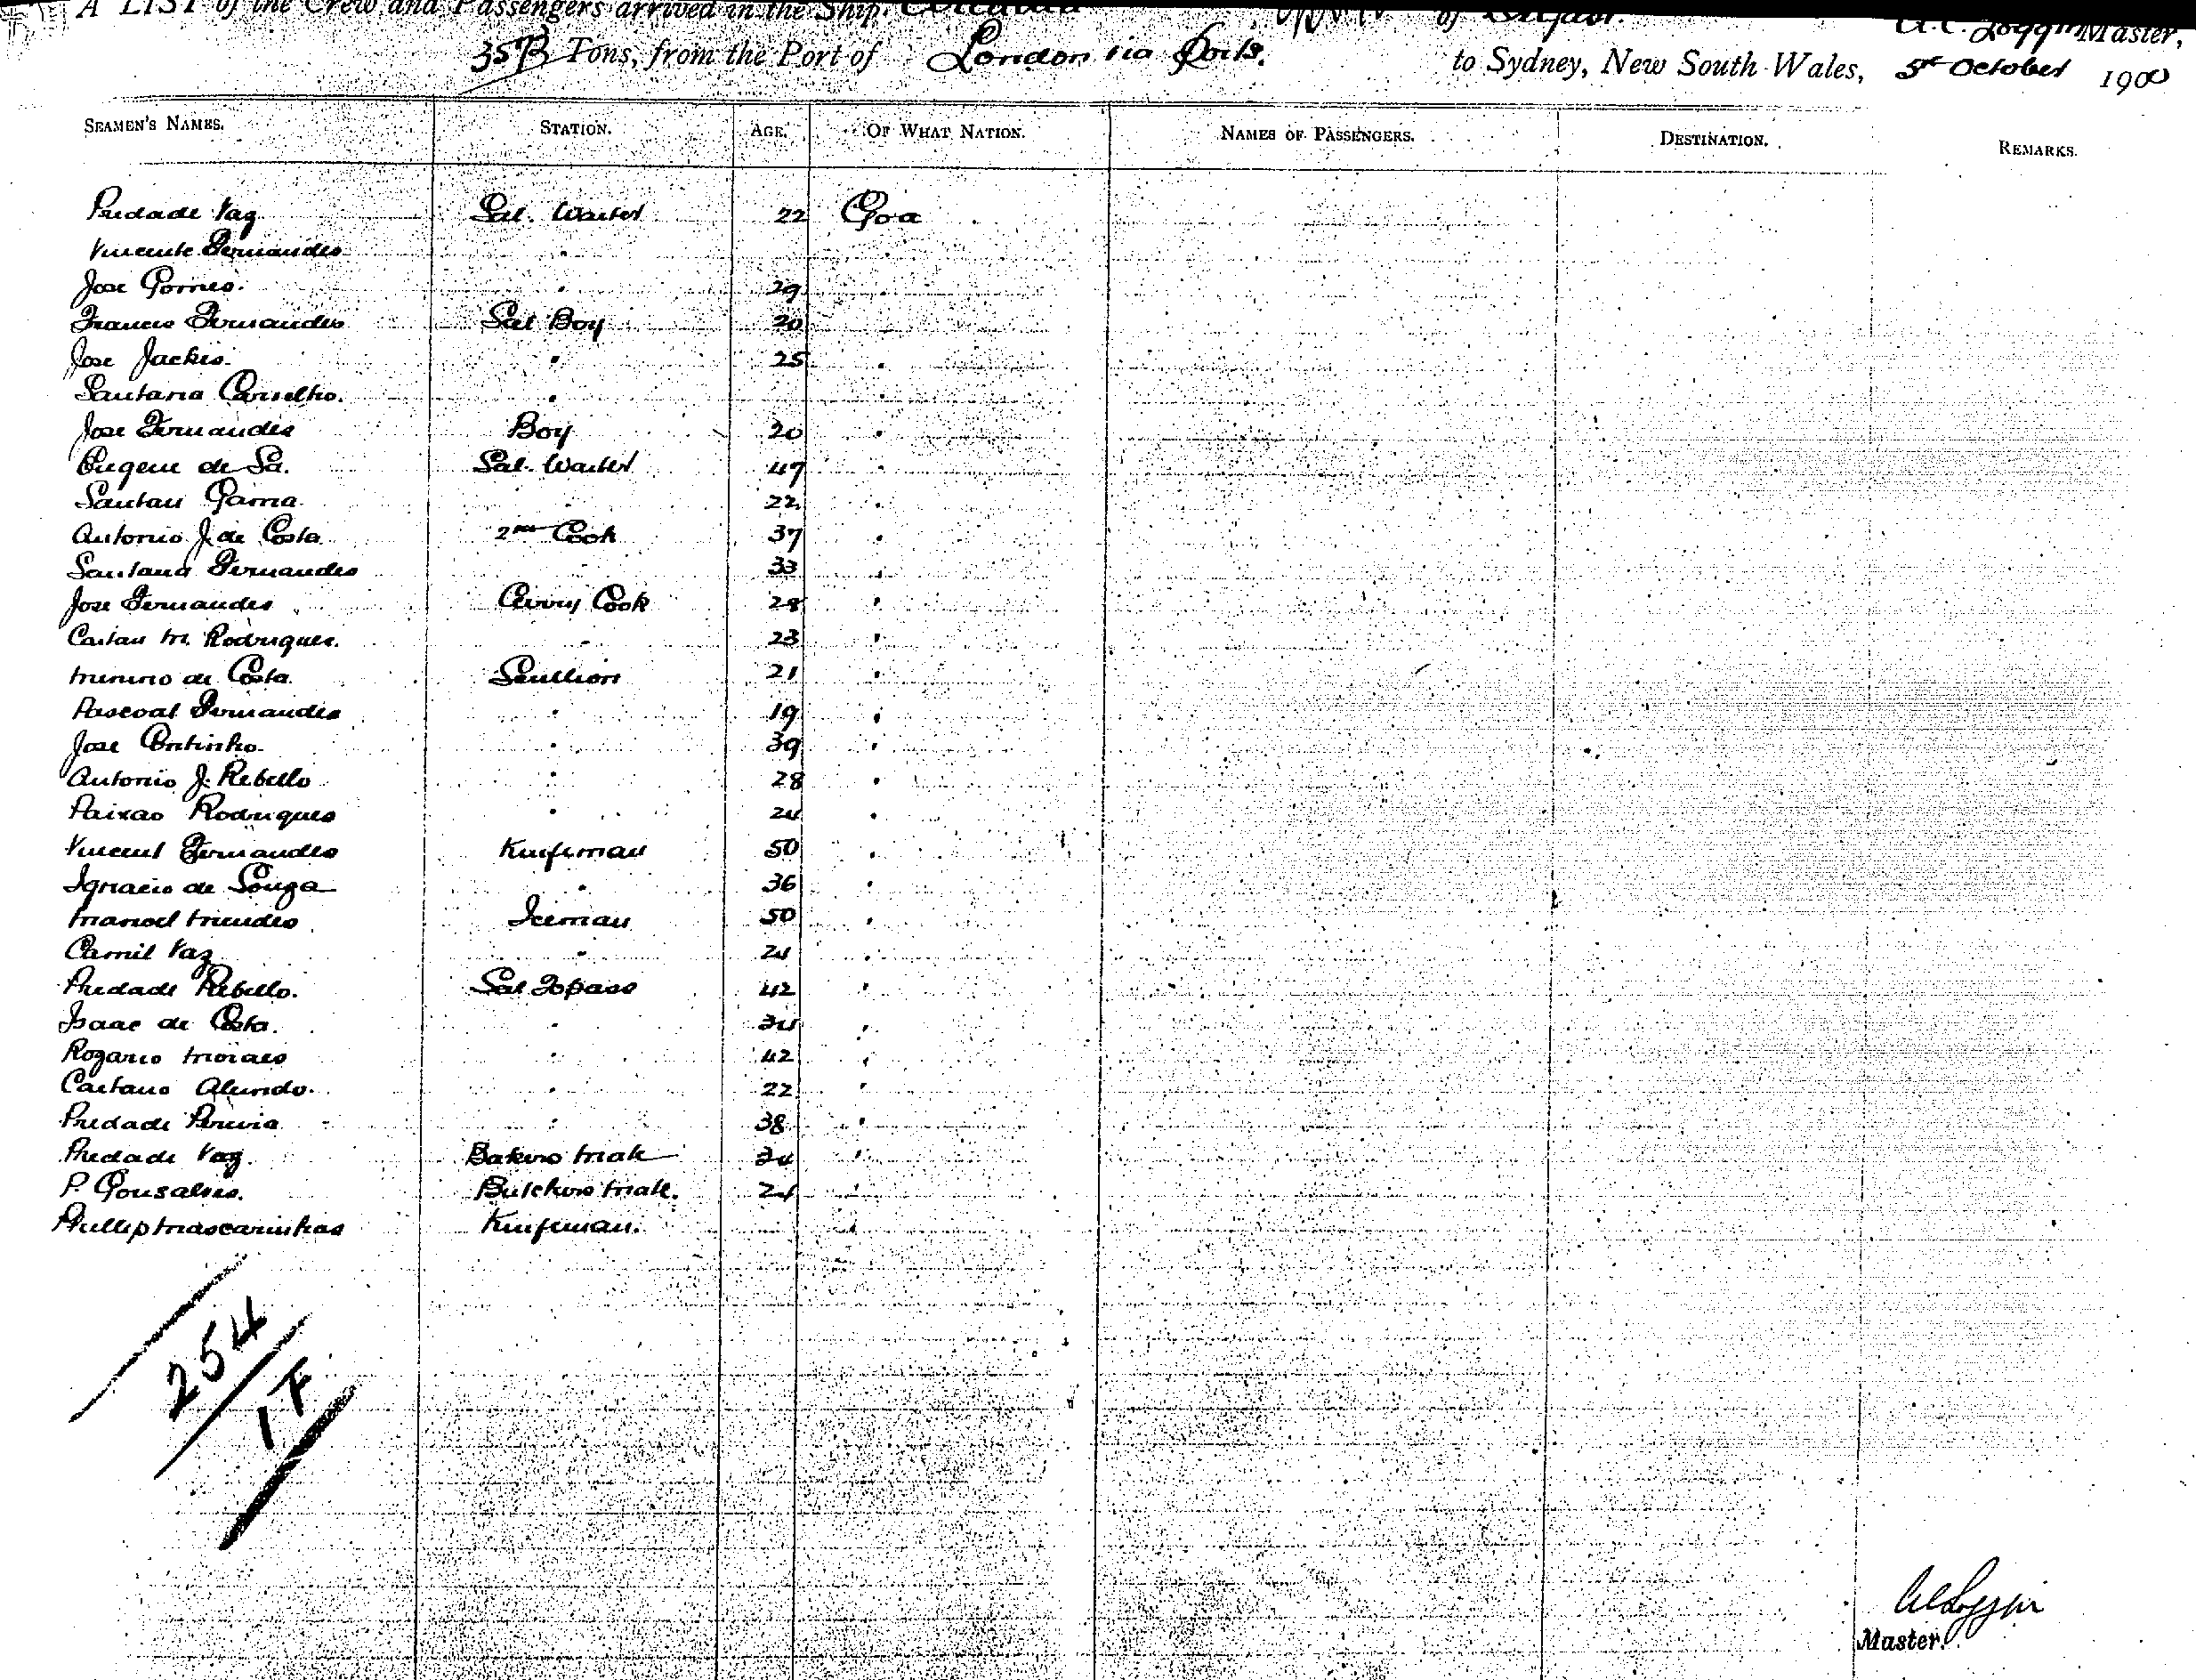 A LIST of the Crew and Passengers arrived in the Ship, of Belfast. A.C. Loggin Master,
3573 Tons, from the Port of London via Ports. to Sydney, New South Wales, 5th October 1900
SEAMEN'S NAMES. STATION. AGE. OF WHAT NATION. NAMES OF PASSENGERS. DESTINATION. REMARKS.
Piedade Vaz Sal. Waiter 22 Goa
Vincente Fernandes "
Jose Gomes. " 29
Francis Fernandes Sal Boy 20
Jose Jackis " 25 "
Santana Carvelho. " "
Jose Fernandes Boy 20 "
Eugene de Sa. Sal. Waiter 47 "
Santan Gama 22 "
Antonio J. de Costa 2nd Cook 37 "
Santana Fernandes 33 "
Jose Fernandes Curry Cook 28 "
Caitan M. Rodrigues. " 23 "
Minino de Costa Scullion 21 "
Pascoal Fernandes " 19 "
Jose Continho " 39 "
Antonio J. Rebello " 28 "
Paixao Rodrigues " 24 "
Vincent Fernandes Knifeman 50 "
Ignacio de Souza " 36 "
Manoel Mendes Iceman 50 "
Camil Vaz " 24 "
Piedade Rebello. Sal Topass 42 "
Isaac de Costa. " 34 "
Rozario Moraes " 42 "
Caetano " 22 "
Piedade Pereira " 38 "
Piedade Vaz. Bakers Mate 34 "
P. Gonsalves. Butchers Mate. 24 "
Phillip Mascarinhas Knifeman. "
254
1 F
A C Loggin
Master.